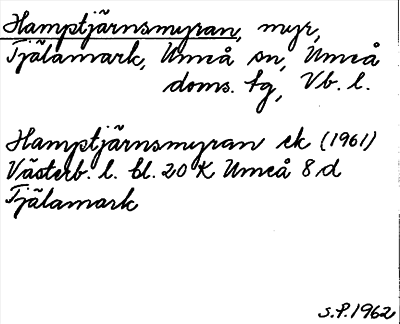 Hamptjärnsmyran, myr,
Tjälamark, Umeå sn, Umeå
doms. tg, Vb. l.
Hamptjärnsmyran ek (1961)
Västerb. l. bl. 20 K Umeå 8 d
Tjälamark
S.P. 1962